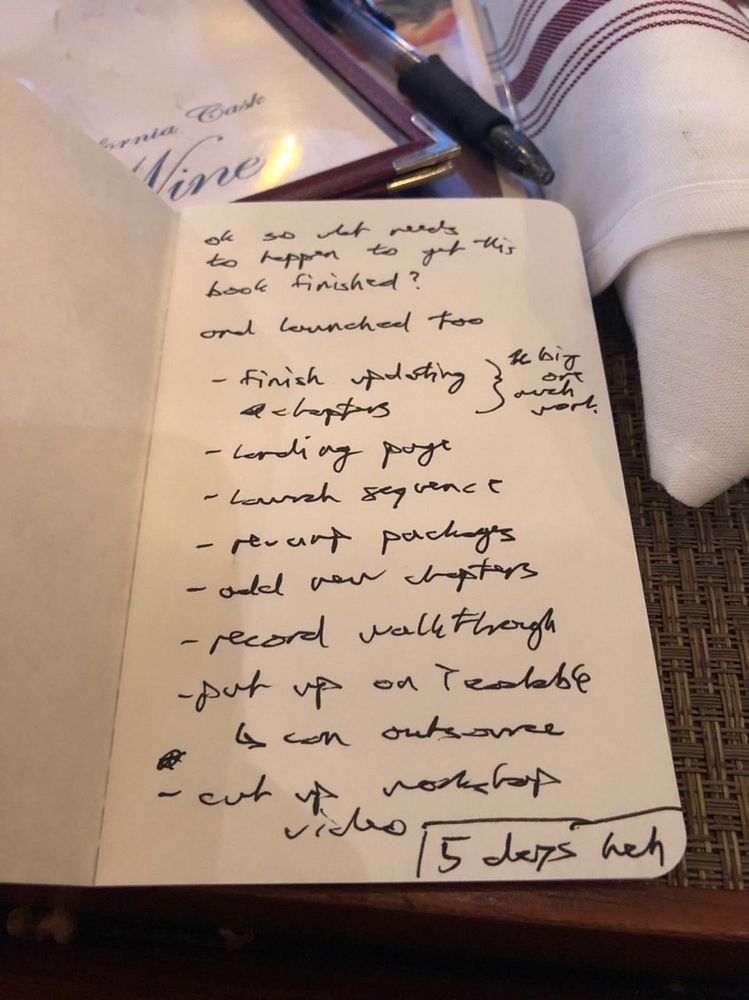 ornia Cask
Wine
ok so what needs
to happen to get this
book finished?
and launched too
- finish updating
chapters
the big
one
much
work.
- landing page
- launch sequence
- revamp packages
- add new chapters
- record walkthrough
- put up on Teachable
↳ can outsource
- cut up workshop
video
5 days heh